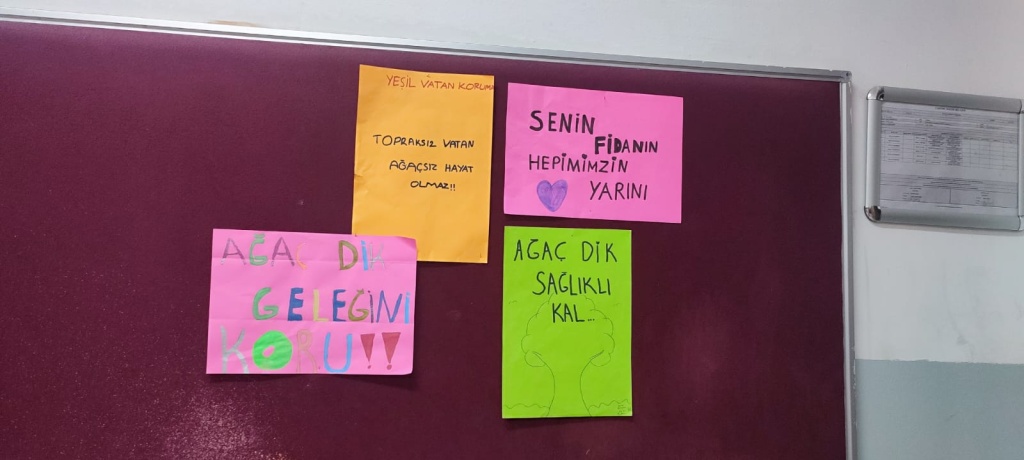 YEŞİL VATAN KORUMA
TOPRAKSIZ VATAN
AĞAÇSIZ HAYAT
OLMAZ!!
SENİN
FİDANIN
HEPİMİMZİN
YARINI
AĞAÇ DİK
GELEĞİNİ
KORU!!
AĞAÇ DİK
SAĞLIKLI
KAL...